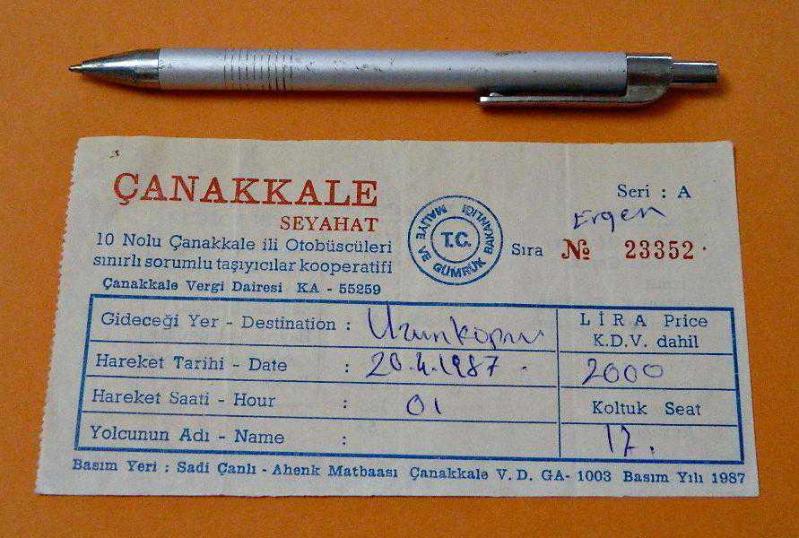 ÇANAKKALE
SEYAHAT
10 Nolu Çanakkale ili Otobüscüleri
sınırlı sorumlu taşıyıcılar kooperatifi
Çanakkale Vergi Dairesi KA - 55259
T.C.
MALİYE VE GÜMRÜK BAKANLIĞI
Seri : A
Ergen
Sıra № 23352
Gideceği Yer - Destination : Uzunköprü
LİRA Price
K.D.V. dahil
Hareket Tarihi - Date : 20.4.1987
2000
Hareket Saati - Hour : 01
Koltuk Seat
Yolcunun Adı - Name :
17.
Basım Yeri : Sadi Çanlı - Ahenk Matbaası Çanakkale V. D. GA- 1003 Basım Yılı 1987